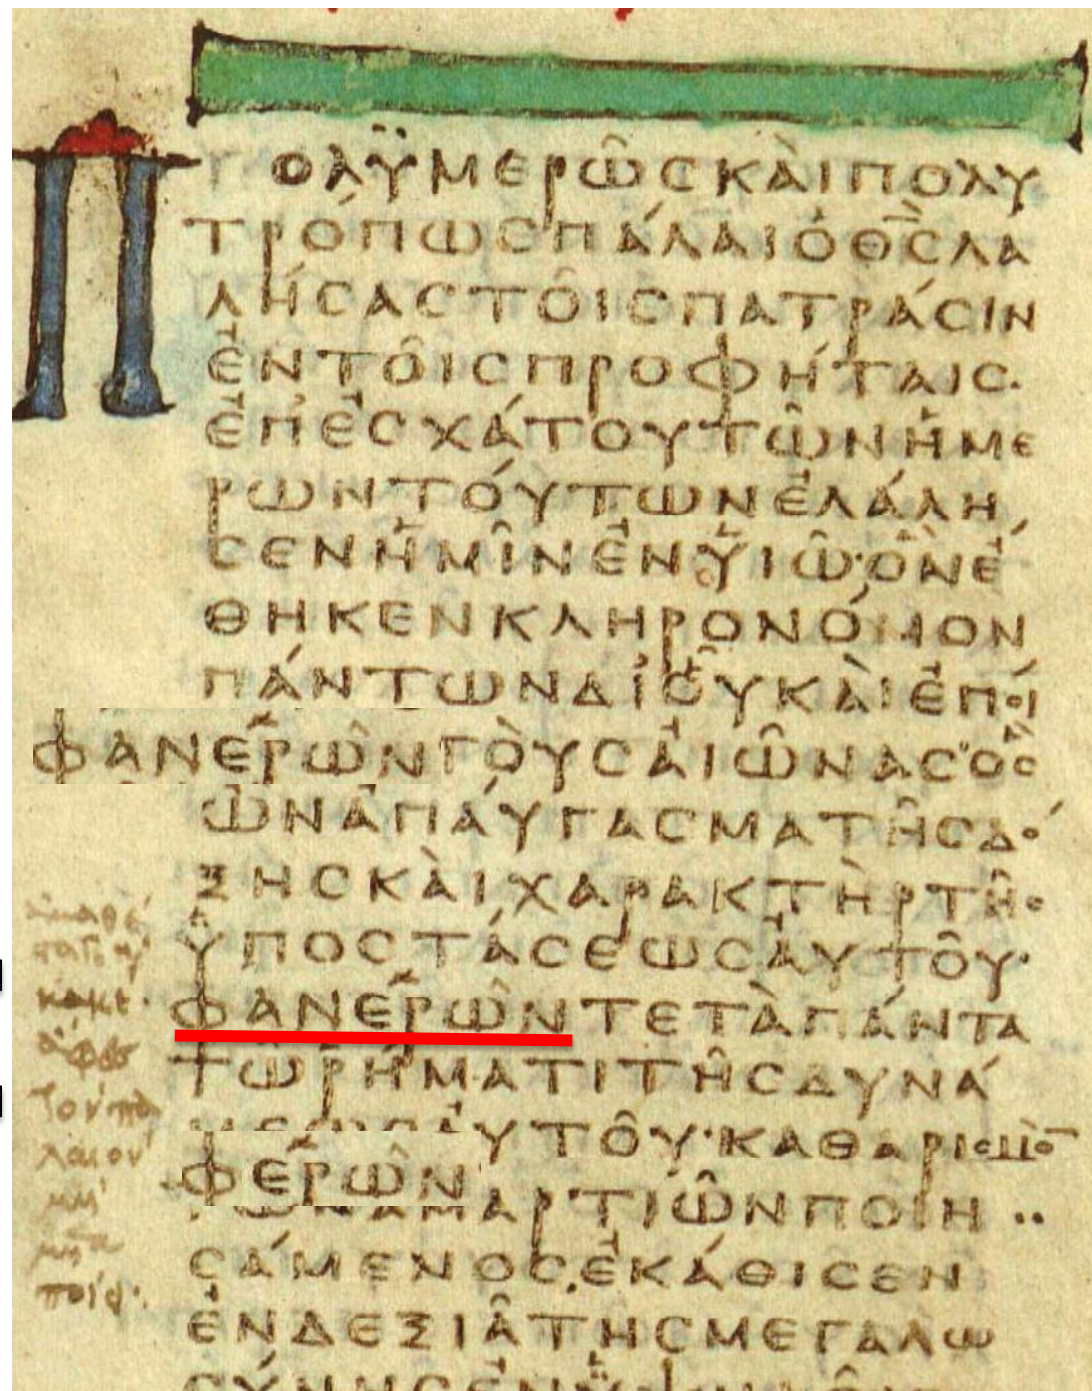 ΠΟΛΥΜΕΡΩϹΚΑΙΠΟΛΥ
ΤΡΟΠΩϹΠΑΛΑΙΟΘϹΛΑ
ΛΗϹΑϹΤΟΙϹΠΑΤΡΑϹΙΝ
ΕΝΤΟΙϹΠΡΟΦΗΤΑΙϹ·
ΕΠΕϹΧΑΤΟΥΤΩΝΗΜΕ
ΡΩΝΤΟΥΤΩΝΕΛΑΛΗ
ϹΕΝΗΜΙΝΕΝΥΙΩ·ΟΝΕ
ΘΗΚΕΝΚΛΗΡΟΝΟΜΟΝ
ΠΑΝΤΩΝΔΙΟΥΚΑΙΕΠΟΙ
ΦΑΝΕΡΩΝΤΟΥϹΑΙΩΝΑϹΟϹ
ΩΝΑΠΑΥΓΑϹΜΑΤΗϹΔΟ
ΞΗϹΚΑΙΧΑΡΑΚΤΗΡΤΗϹ
ΥΠΟϹΤΑϹΕΩϹΑΥΤΟΥ·
ΦΑΝΕΡΩΝΤΕΤΑΠΑΝΤΑ
ΤΩΡΗΜΑΤΙΤΗϹΔΥΝΑ
ΜΕΩϹΑΥΤΟΥ·ΚΑΘΑΡΙϹΜΟ
ΦΕΡΩΝ
ΤΩΝΑΜΑΡΤΙΩΝΠΟΙΗ
ϹΑΜΕΝΟϹΕΚΑΘΙϹΕΝ
ΕΝΔΕΞΙΑΤΗϹΜΕΓΑΛΩ
ϹΥΝΗϹΕΝΥΨ
κακέ·
ἄφες
τὸν πα
λαιόν
μὴ